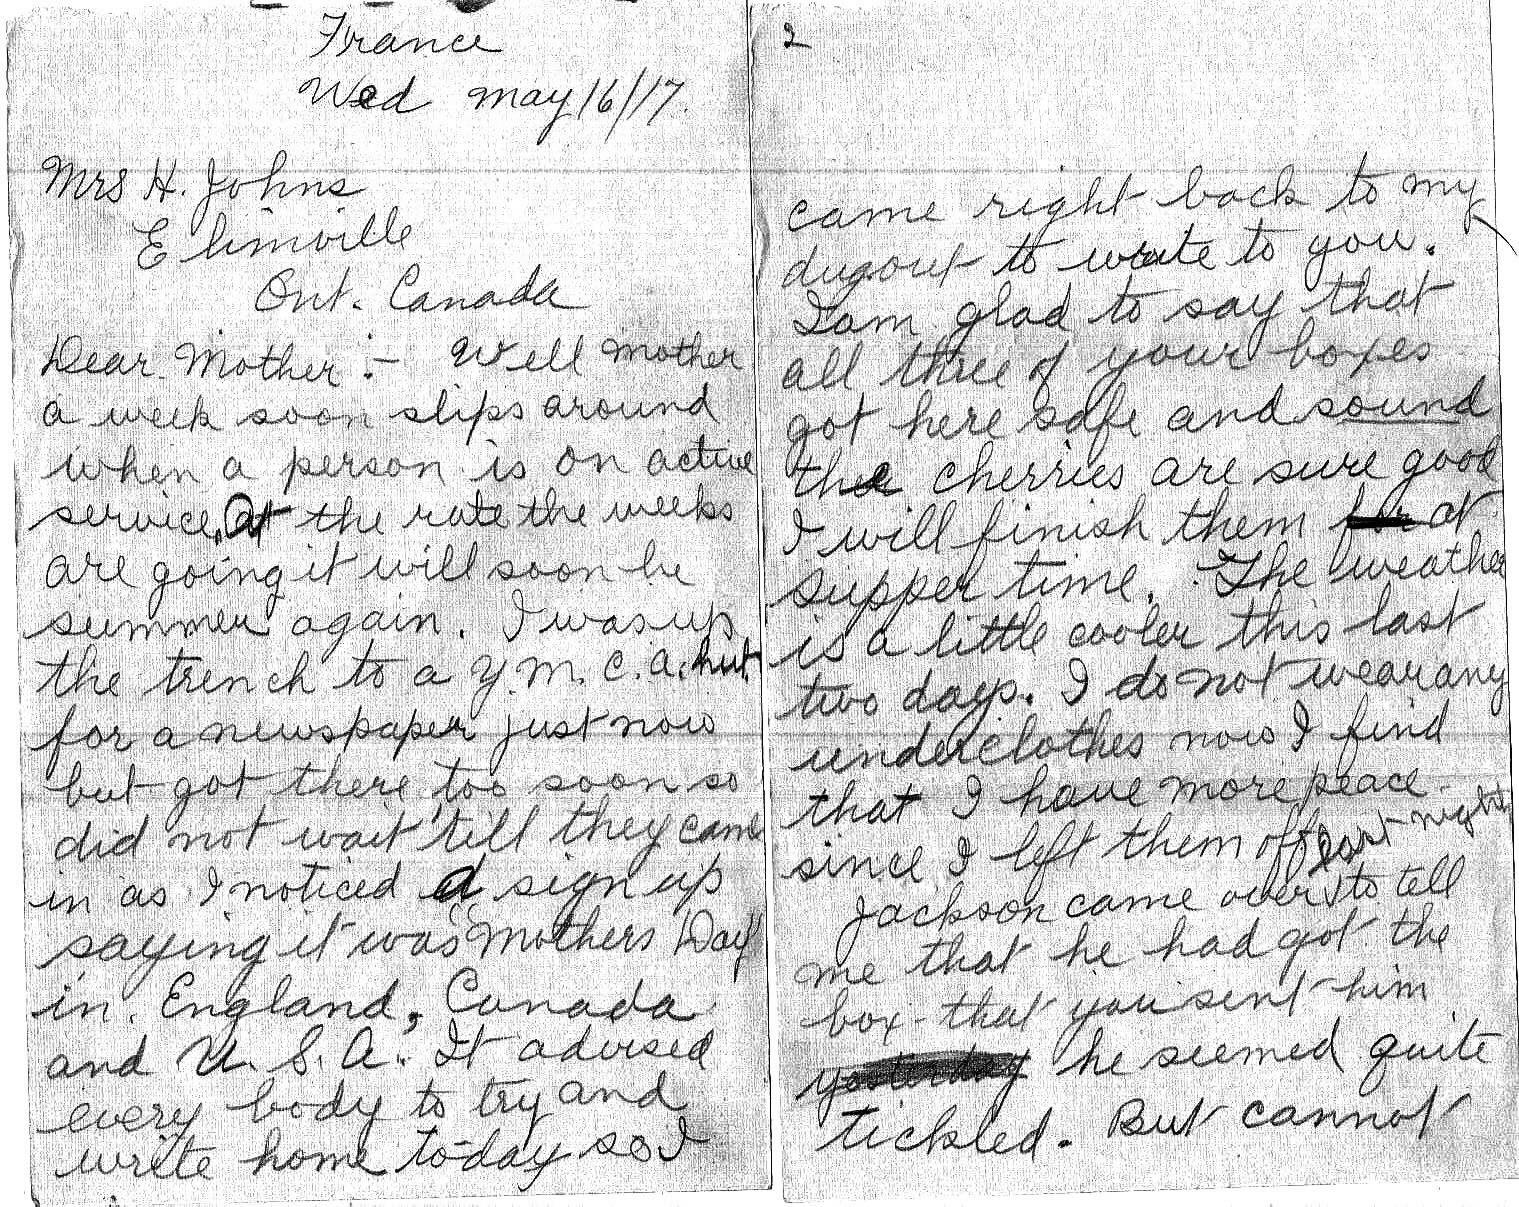 France
Wed May 16/17.
Mrs H. Johns
Elimville
Ont. Canada
Dear Mother:- Well Mother
a week soon slips around
when a person is on active
service. At the rate the weeks
are going it will soon be
summer again. I was up
the trench to a Y.M.C.A. hut
for a newspaper just now
but got there too soon so
did not wait 'till they came
in as I noticed a sign up
saying it was Mothers Day
in England, Canada
and U.S.A. It advised
every body to try and
write home to-day so I
2
came right back to my
dugout to write to you.
I am glad to say that
all three of your boxes
got here safe and sound
the cherries are sure good
I will finish them for at
supper time. The weather
is a little cooler this last
two days. I do not wear any
underclothes now I find
that I have more peace
since I left them off last night
Jackson came over to tell
me that he had got the
box that you sent him
yesterday he seemed quite
tickled. But cannot